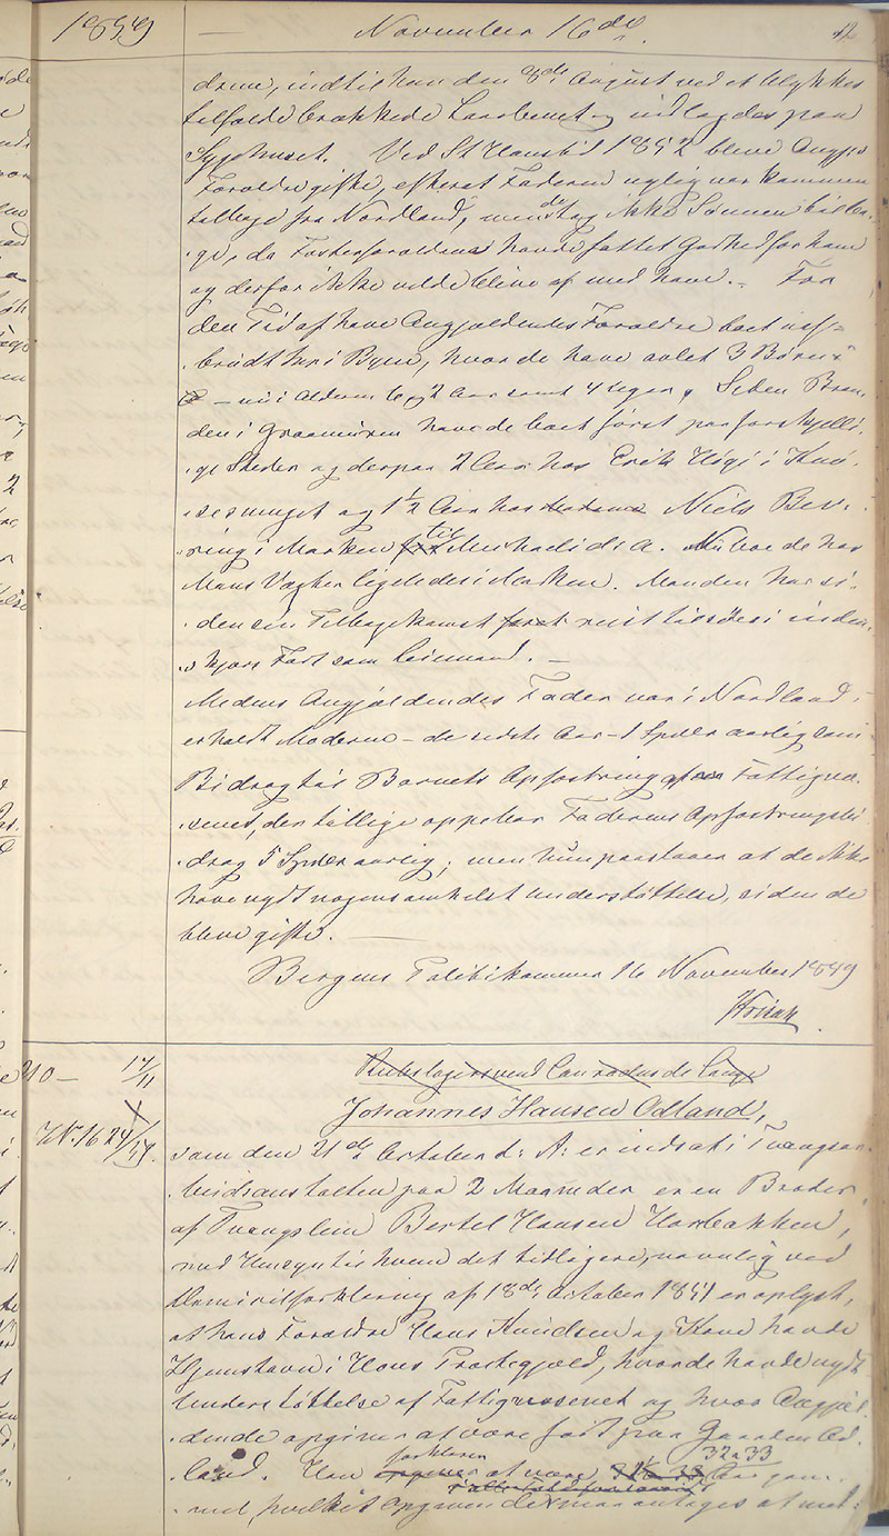 1859 — November 16de. 12
drene, indtil han den 8de August ved et Ulykkes
tilfælde brækkede Laarbenet og indlagdes paa
Sygehuset. Ved St Hanstid 1852 bleve Angjs
Forældre gifte, efterat Faderen nylig var kommen
tilbage fra Nordland, men de tog ikke Sønnen tilba-
ge, da Fosterforældrene havde fattet Godhed for ham
og derfor ikke vilde blive af med ham. – Før
den Tid af have Angjældendes Forældre boet uaf-
brudt her i Byen, hvor de have avlet 3 Børn
– nu i Alderen 6 og 2 Aar samt 4 Uger. Siden Bran-
den i Graamuren have de boet først paa forskjelli-
ge Steder og derpaa 2 Aar hos Erik i Knø-
sesmuget og 1½ Aar hos Madame Niels Bev-
ring i Marken til Michaeli d. A. Nu boe de hos
Mons Vægter ligeledes i Marken. Manden har si-
den sin Tilbagekomst faret reist tilsøes i inden-
skjærs Fart som Leiemand. –
Medens Angjældendes Fader var i Nordland,
erholdt Moderen – de sidste Aar – 1 Spdlr aarlig som
Bidrag til Barnets Opfostring af Fattigvæ-
senet, der tillige oppebar Faderens Opfostringsbi-
drag 5 Spdlr aarlig; men hun paastaaer at de ikke
have nydt nogensomhelst Understøttelse, siden de
bleve gifte. —
Bergens Politikammer 16 November 1859
210 – 17/11
Rebslagersvend Conradus de Lange
Johannes Hansen Odland,
No. 16 24/11 59.
som den 21de October d: A: er indsat i Tvangsar-
beidsanstalten paa 2 Maaneder er en Broder
af Tvangslem Bertel Hansen Harbakken,
med Hensyn til hvem det tidligere, navnlig ved
Hemvistforklaring af 18de October 1851 er oplyst,
at hans Forældre Hans Knudsen og Kone havde
Hjemstavn i Hous Præstegjæld, hvor de havde nydt
Understøttelse af Fattigvæsenet og hvor Angjæl-
dende opgiver at være født paa Gaarden Od-
land. Han opgiver forklarer at være 32 a 33 Aar gam-
mel, hvilket Opgivende maa antages at med-